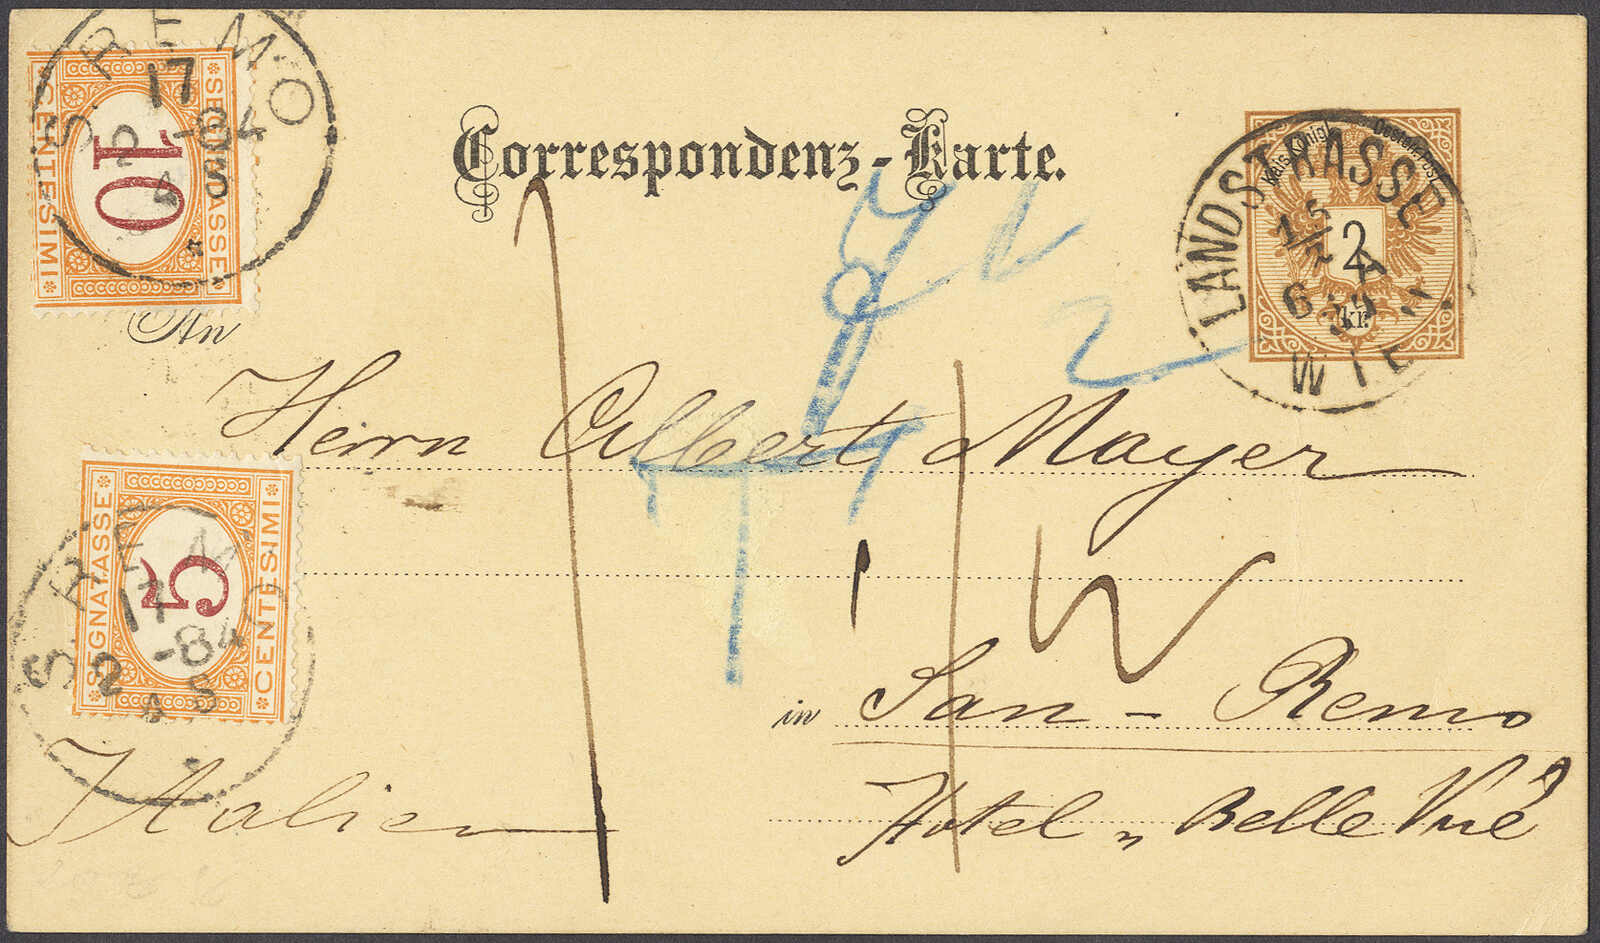 S. REMO
17
2 -84
4 S
SEGNATASSE
10
CENTESIMI
Correspondenz-Karte.
Kais. Königl. Oesterr. Post
2
kr.
LANDSTRASSE
WIEN
An
Herrn Albert Mayer
SEGNATASSE
5
CENTESIMI
S. REMO
17
2 -84
in San-Remo
Italien
Hotel " Belle Vue